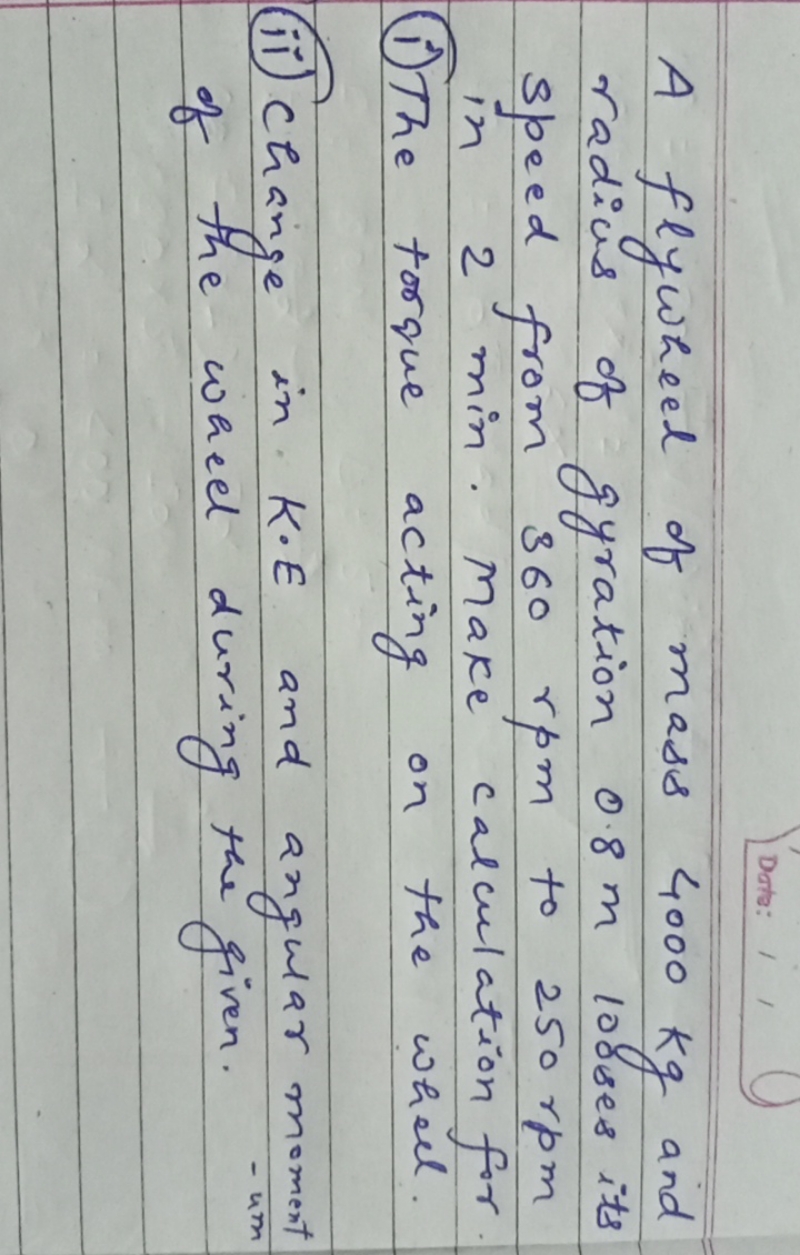 Date: / /
A flywheel of mass 4000 kg and
radius of gyration 0.8 m looses its
speed from 360 rpm to 250 rpm
in 2 min. Make calculation for.
(i) The torque acting on the wheel.
(ii) change in K.E and angular moment
-um
of the wheel during the given.